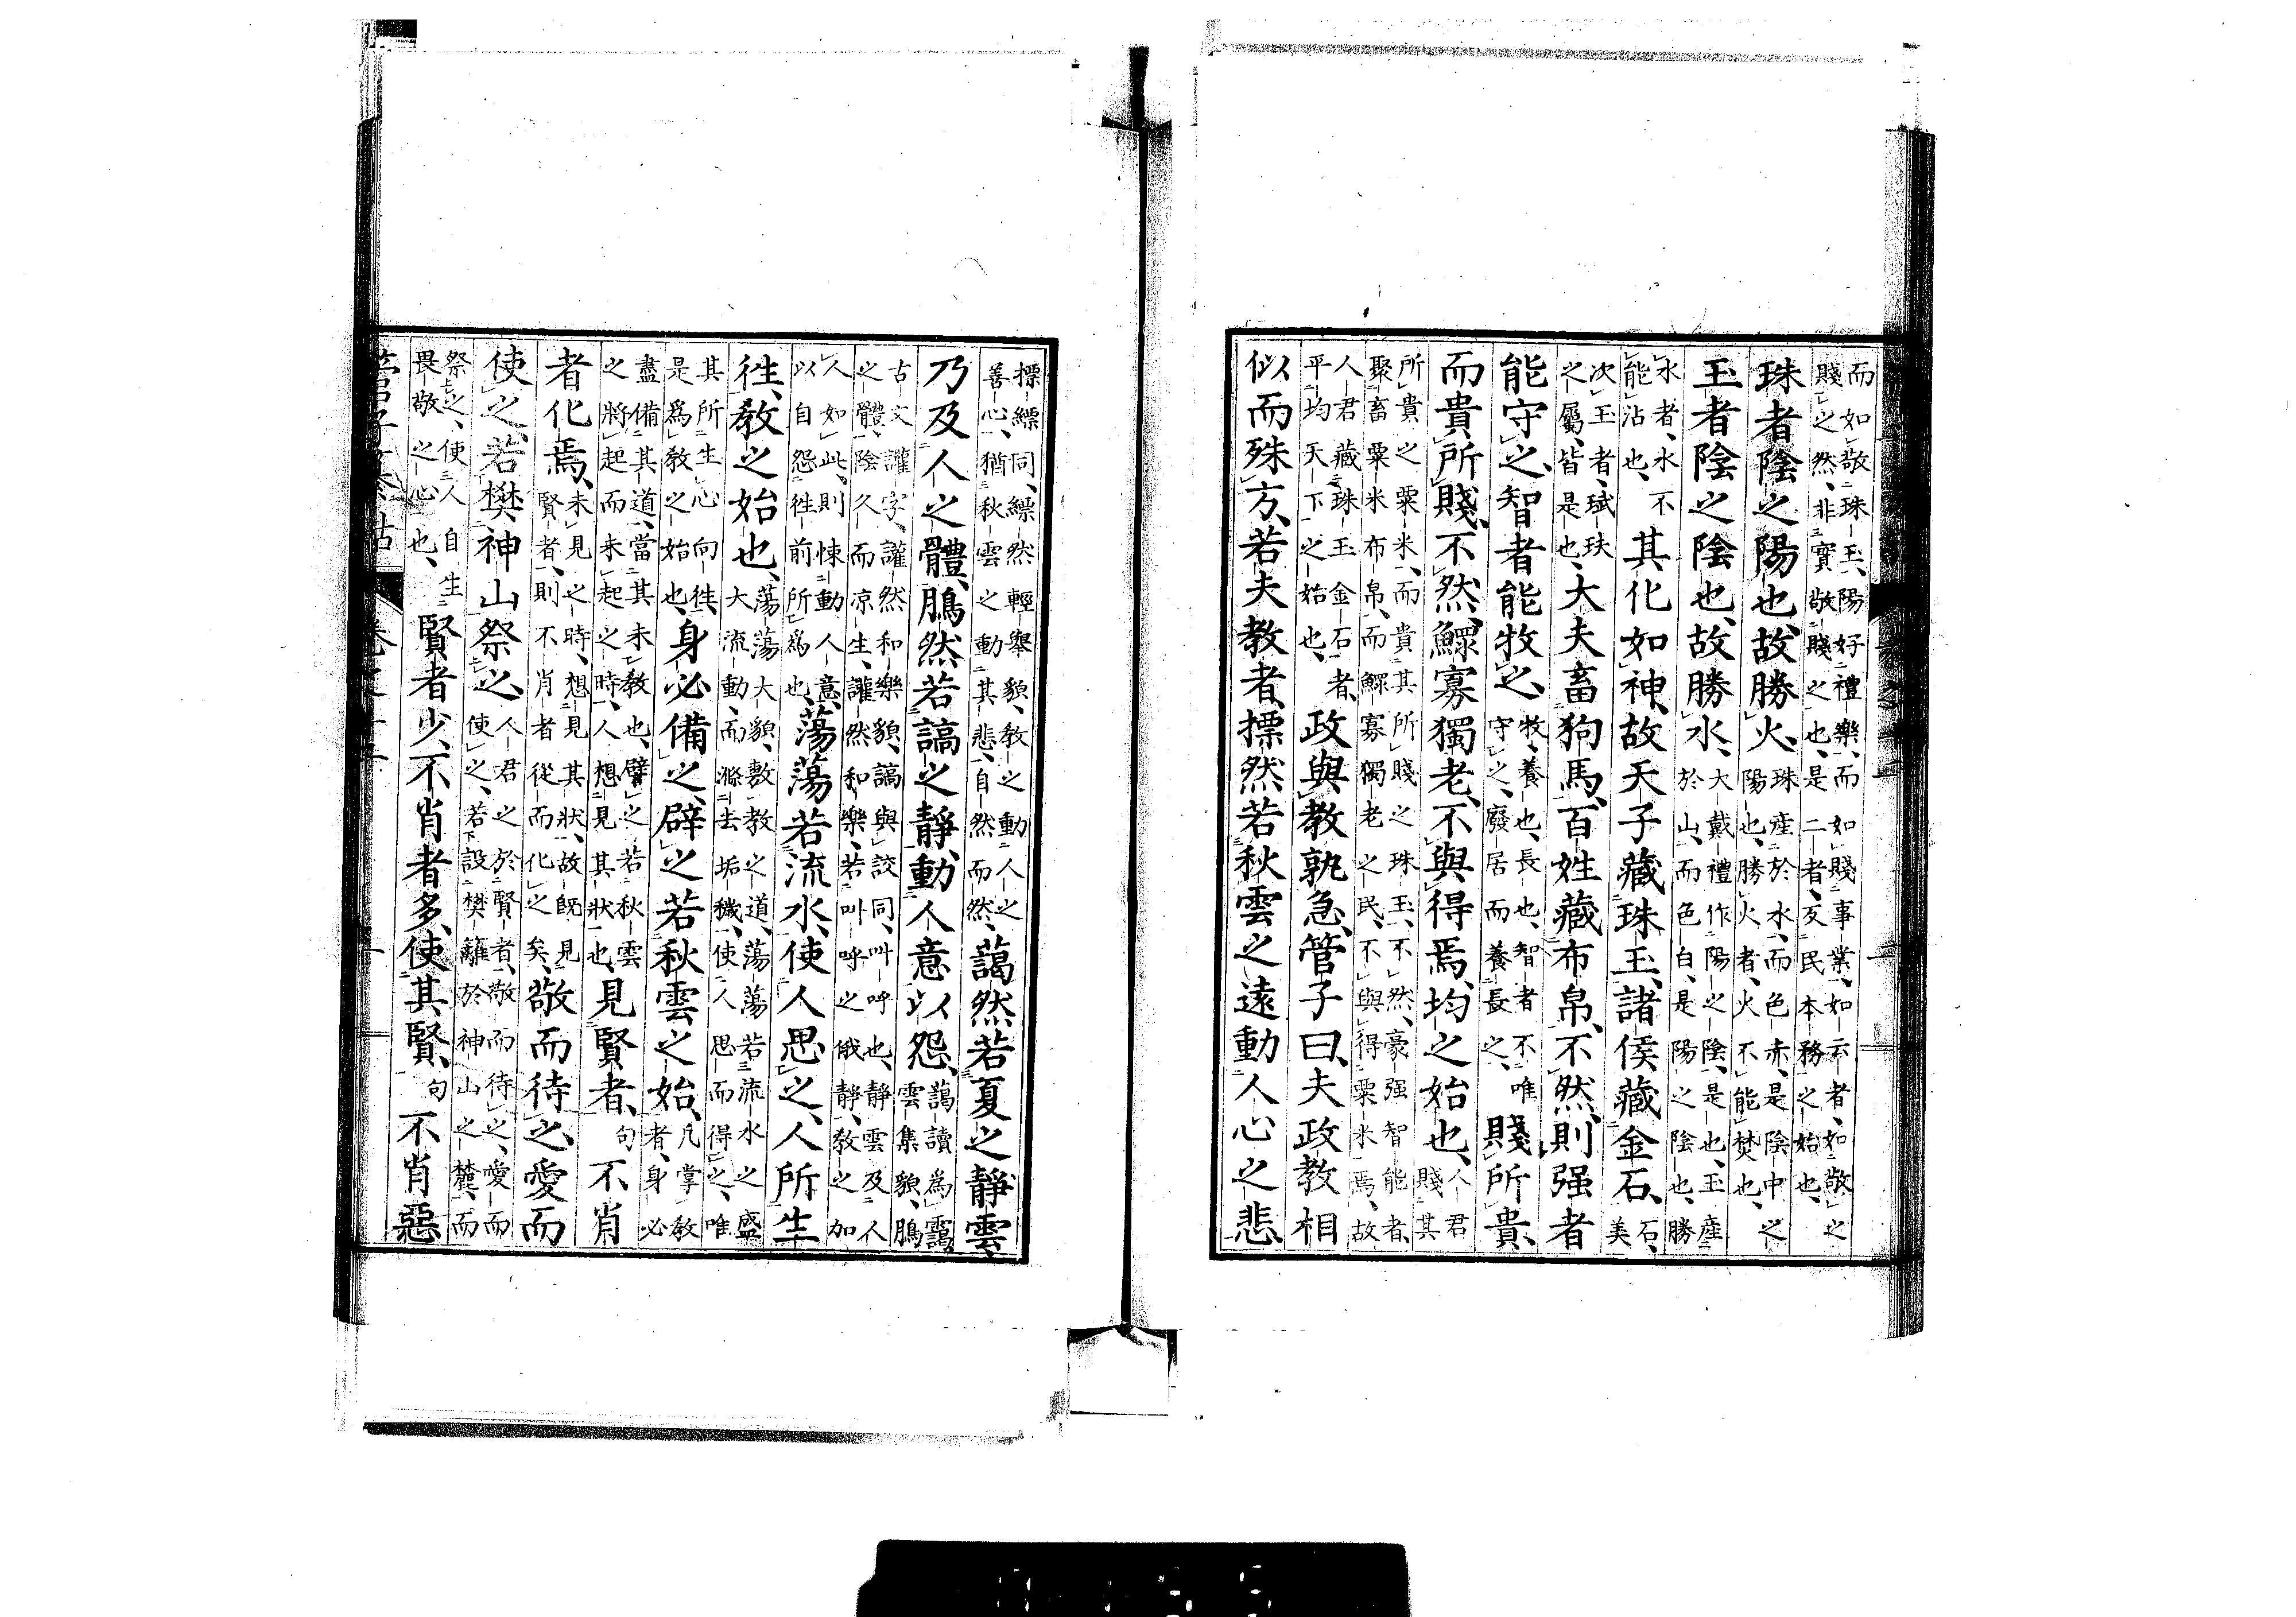 而如敬珠玉、陽好禮樂、而如賤事業、如云者、如敬之
賤之然、非實敬賤之也、是二者、亥民本務之始也、
珠者陰之陽也、故勝火、
珠産於水、而色赤、是陰中之
陽也、勝火者、火不能焚也、
玉者陰之陰也、故勝水、
大戴禮作陽之陰、是也、玉産
於山、而色白、是陽之陰也、勝
水者、水不
能沾也、
其化如神、故天子藏珠玉、諸侯藏金石、
石、
美
次玉者、珷玞
之屬、皆是也、
大夫畜狗馬、百姓藏布帛、不然、則强者
能守之、智者能牧之、
牧、養也、長也、智者不唯
守之、廢居而養長之、
賤所貴、
而貴所賤、不然、鰥寡獨老、不與得焉、均之始也、
人君
賤其
所貴之粟米、而貴其所賤之珠玉、不然、豪强智能者、
聚畜粟米布帛、而鰥寡獨老之民、不與得粟米焉、故
人君藏珠玉金石者、
平均天下之始也、
政與教孰急、管子曰、夫政教相
似而殊方、若夫教者、摽然若秋雲之遠動人心之悲、
摽縹同、縹然輕舉貌、教之動人之
善心、猶秋雲之動其悲、自然而然、
藹然若夏之靜雲、
乃及人之體、鵰然若謞之靜、動人意以怨、
藹讀爲靄、
雲集貌、鵰
古文讙字、讙然和樂貌、謞與詨同、叫呼也、靜雲及人
之體、陰久而凉生、讙然和樂、若叫呼之俄靜、教之加
人如此、則悚動人意、
以自怨徃前所爲也、
蕩蕩若流水、使人思之、人所生
徃、教之始也、
蕩蕩大貌、敷教之道、蕩蕩若流水之盛
大流動、而滌去垢穢、使人思而得之、唯
其所生心向徃、
是爲教之始也、
身必備之、辟之若秋雲之始、
凡掌教
者、身必
盡備其道、當其未教也、譬之若秋雲
之將起而未起之時、人想見其狀也、
見賢者、句 不肖
者化焉、
未見之時、想見其狀、故旣見
賢者、則不肖者從而化之矣、
敬而待之、愛而
使之、若樊神山祭之、
人君之於賢者、敬而待之、愛而
使之、若設樊籬於神山之麓、而
祭之、使人自生
畏敬之心也、
賢者少、不肖者多、使其賢、句 不肖惡
管子纂詁 卷之十二